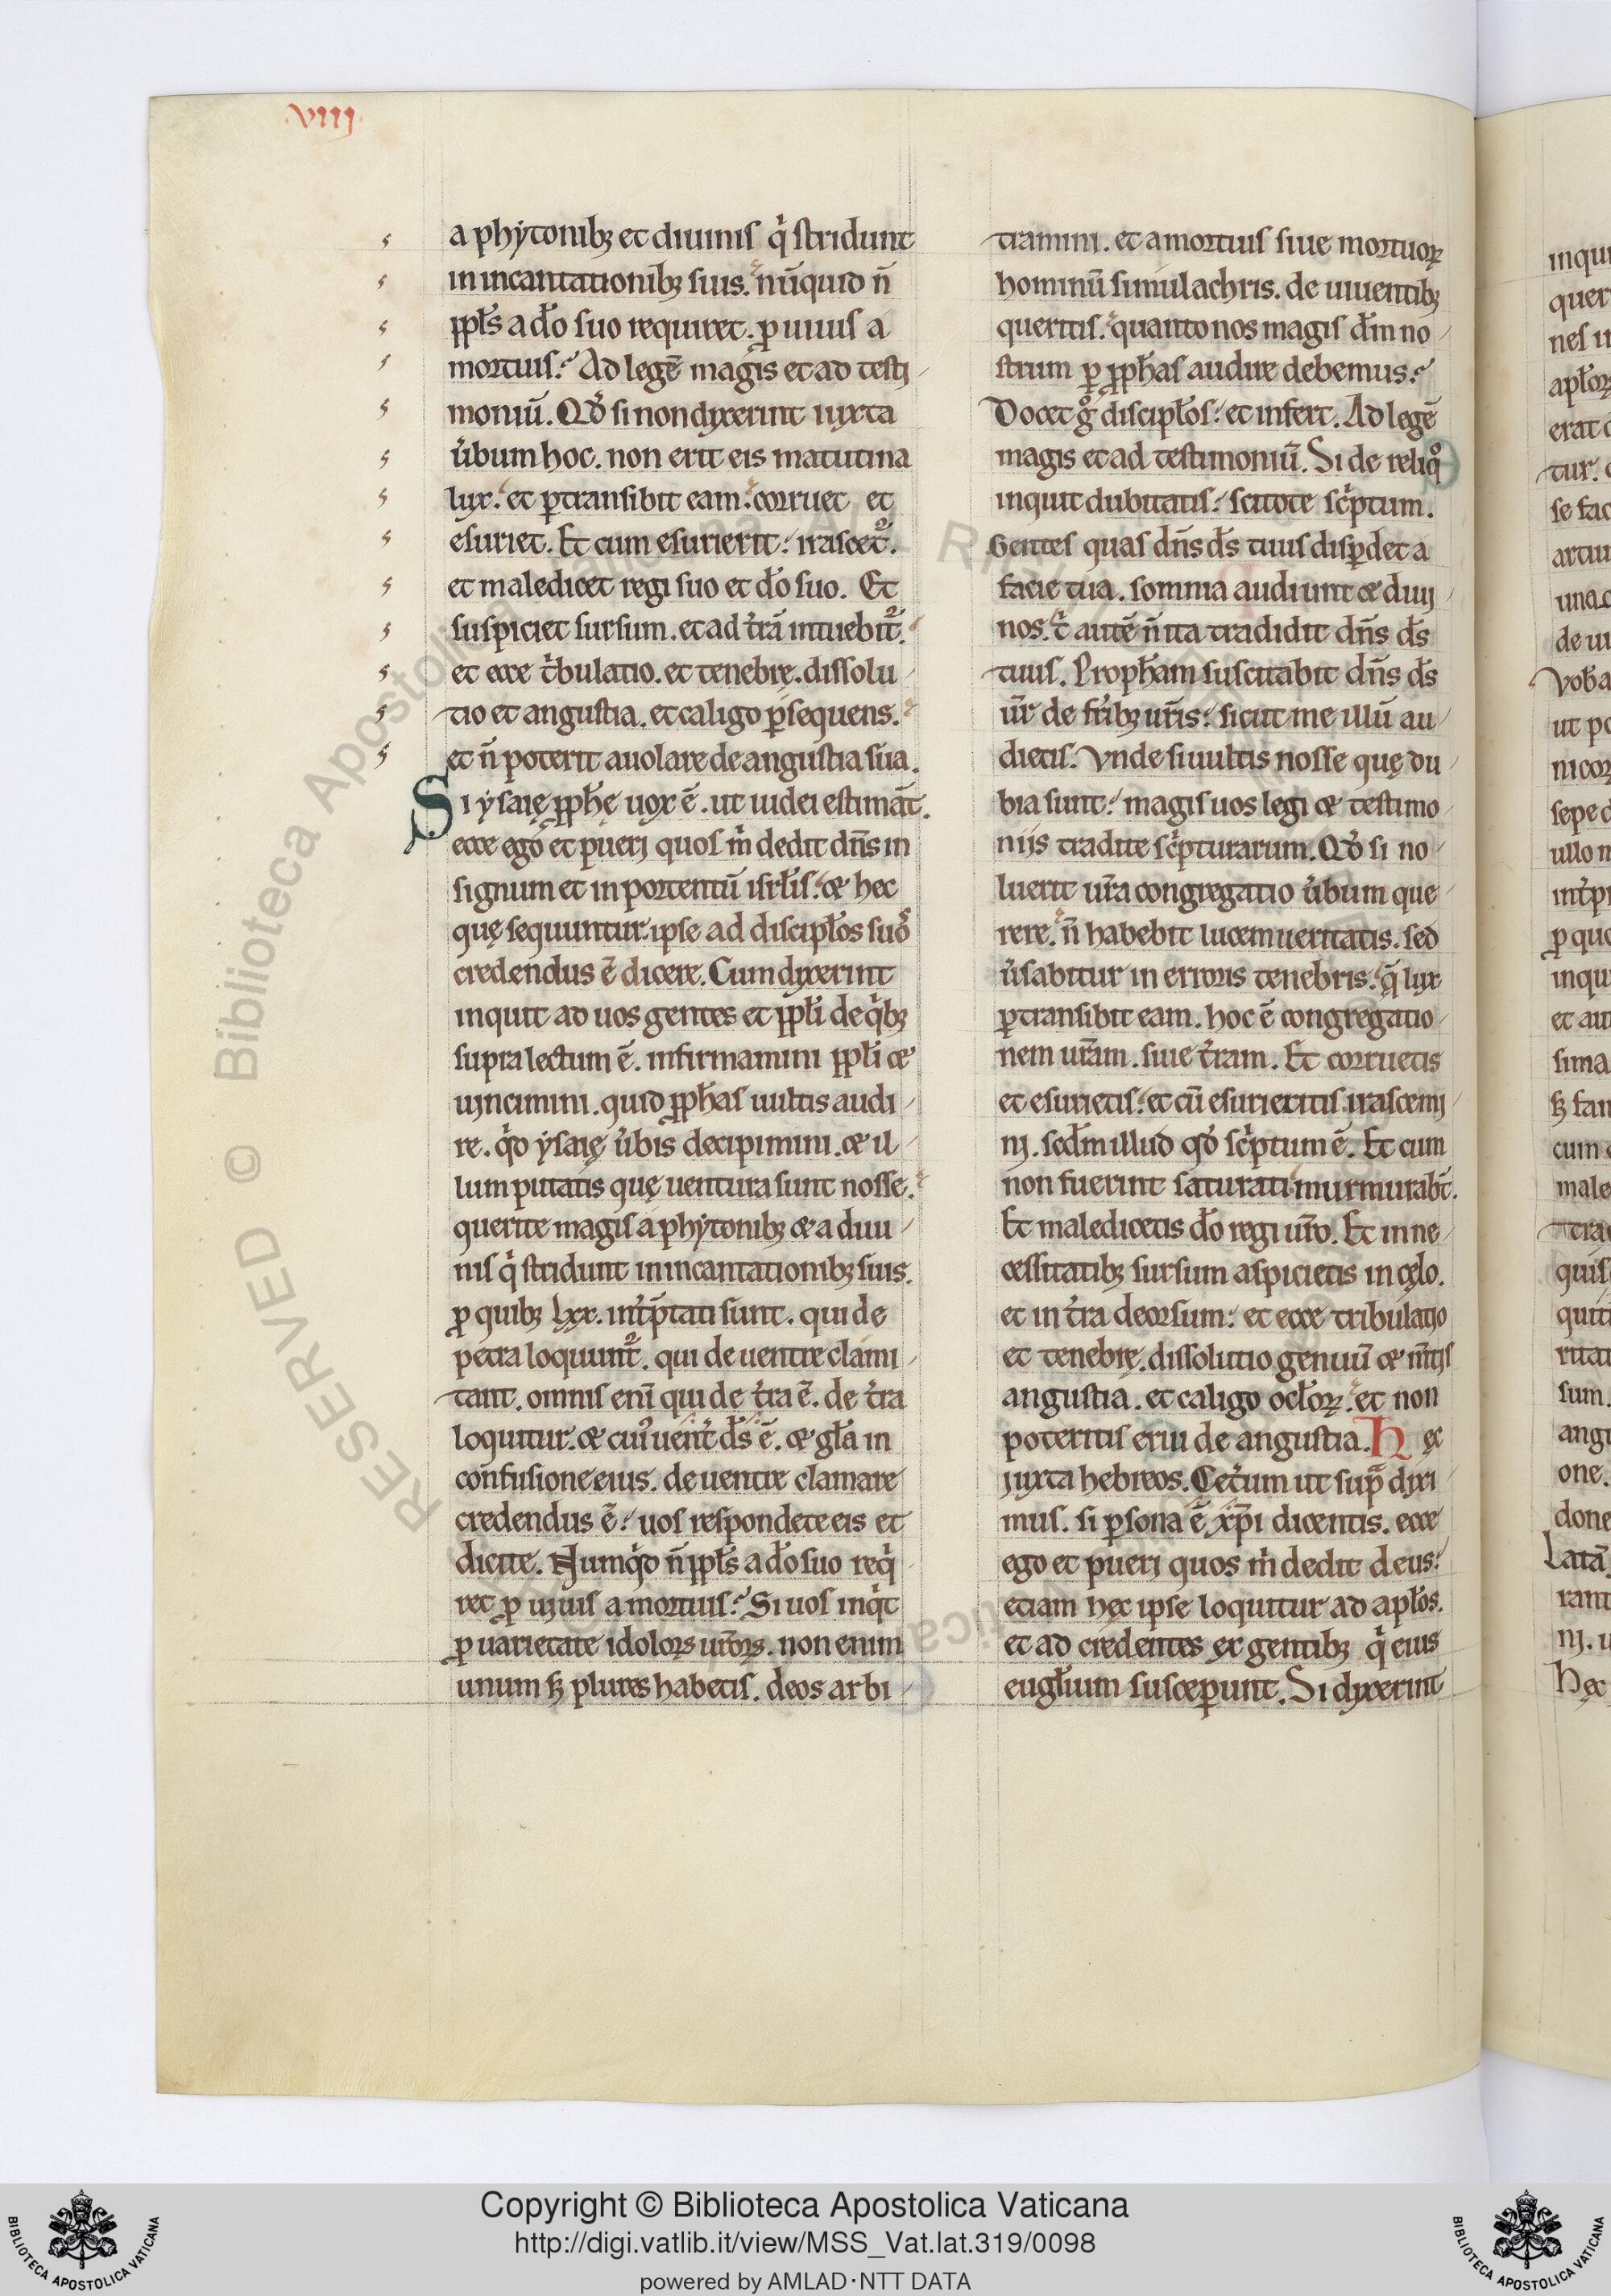 .VIIJ.
a phẏtonibꝫ et diuinis qͥ stridunt
in incantationibꝫ suis. nūquid n̄
ppl̄s a dō suo requiret. ꝓ uiuis a
mortuis? Ad legē magis et ad testi
moniū. Qđ si non dixerint iuxta
u̓bum hoc. non erit eis matutina
lux. et ꝑtransibit eam. corruet et
esuriet. Et cum esurierit. irascet᷑.
et maledicet regi suo et dō suo. Et
suspiciet sursum. et ad t̓rā intuebit᷑.
et ecce tͥbulatio. et tenebrę. dissolu
tio et angustia. et caligo ꝑsequens.
et n̄ poterit auolare de angustia sua.
Si ẏsaię ꝓph̄ę uox ē. ut iudei estimāt.
ecce ego et pueri quos m̍ dedit dn̄s in
signum et in portentū isrl̄is. & hec
quę sequuntur. ipse ad discipl̄os suos
credendus ē dicere. Cum dixerint
inquit ad uos gentes et ppl̄i de qͥbꝫ
supra lectum ē. infirmamini ppl̄i &
uincimini. quid ꝓph̄as uultis audi
re. qͥd ẏsaię u̓bis decipimini. & il
lum putatis quę uentura sunt nosse.
querite magis a phẏtonibꝫ & a diui
nis qͥ stridunt in incantationibꝫ suis.
ꝓ quibꝫ lxx. int̓p̄tati sunt. qui de
petra loquunt᷑. qui de uentre clami
tant. omnis enī qui de t̓ra ē. de t̓ra
loquitur. & cui᷒ uent̓ ds̄ ē. & gl̄a in
confusione eius. de uentre clamare
credendus ē. uos respondete eis et
dicite. Numqͥd n̄ ppl̄s a dō suo reqͥ
ret ꝓ uiuis a mortuis? Si uos inqͥt
ꝓ uarietate idoloꝝ ur̄oꝝ. non enim
unum sꝫ plures habetis. deos arbi
tramini. et a mortuis siue mortuoꝝ
hominū simulachris. de uiuentibꝫ
queritis. quanto nos magis dm̄ no
strum ꝑ ꝓph̄as audire debemus?
Docet gͦ discipl̄os. et infert. Ad legē
magis et ad testimoniū. Si de reliqͦ
inquit dubitatis. scitote scͥptum.
Gentes quas dn̄s ds̄ tuus disꝑdet a
facie tua. somnia audiunt & diui
nos. tͥ autē n̄ ita tradidit dn̄s ds̄
tuus. Proph̄am suscitabit dn̄s ds̄
ur̄ de fr̄ibꝫ ur̄is. sicut me illū au
dietis. Vnde si uultis nosse quę du
bia sunt. magis uos legi & testimo
niis tradite scͥpturarum. Qđ si no
luerit ur̄a congregatio u̓bum que
rere. n̄ habebit lucem ueritatis. sed
u̓sabitur in erroris tenebris. q̄ lux
ꝑtransibit eam. hoc ē congregatio
nem ur̄am. siue t̓ram. Et corruetis
et esurietis. et cū esurieritis. irascemi
ni. scd̄m illud qđ scͥptum ē. Et cum
non fuerint saturati murmurabt̄.
Et maledicetis dō regi ur̄o. Et in ne
cessitatibꝫ sursum aspicietis in cęlo.
et in t̓ra deorsum. et ecce tribulatio
et tenebrę. dissolutio genuū & mt̄is
angustia. et caligo ocl̄oꝝ. et non
poteritis erui de angustia. Hęc
iuxta hebreos. Cet̓um ut supͣ dixi
mus. si ꝑsona ē xp̄i dicentis. ecce
ego et pueri quos m̍ dedit deus.
etiam hęc ipse loquitur ad apl̄os.
et ad credentes ex gentibꝫ qͥ eius
eugl̄ium susceꝑunt. Si dixerint
Copyright © Biblioteca Apostolica Vaticana
http://digi.vatlib.it/view/MSS_Vat.lat.319/0098
powered by AMLAD·NTT DATA
BIBLIOTECA APOSTOLICA VATICANA
BIBLIOTECA APOSTOLICA VATICANA